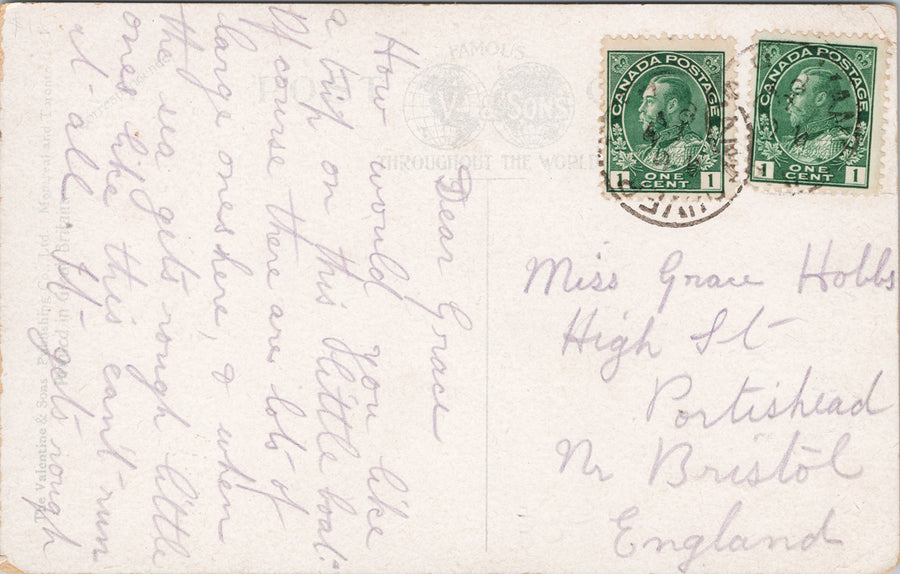 Dear Grace
How would you like
a trip on this little boat.
Of course there are lots of
large ones here, & when
the sea gets rough little
ones like this cant run
at all. It gets rough
Miss Grace Hobbs
High St
Portishead
Nr Bristol
England
CANADA POSTAGE
1 ONE CENT 1
CANADA POSTAGE
1 ONE CENT 1
FAMOUS
V. & SONS
THROUGHOUT THE WORLD
POST
The Valentine & Sons Publishing Co., Ltd. Montreal and Toronto
Printed in Great Britain